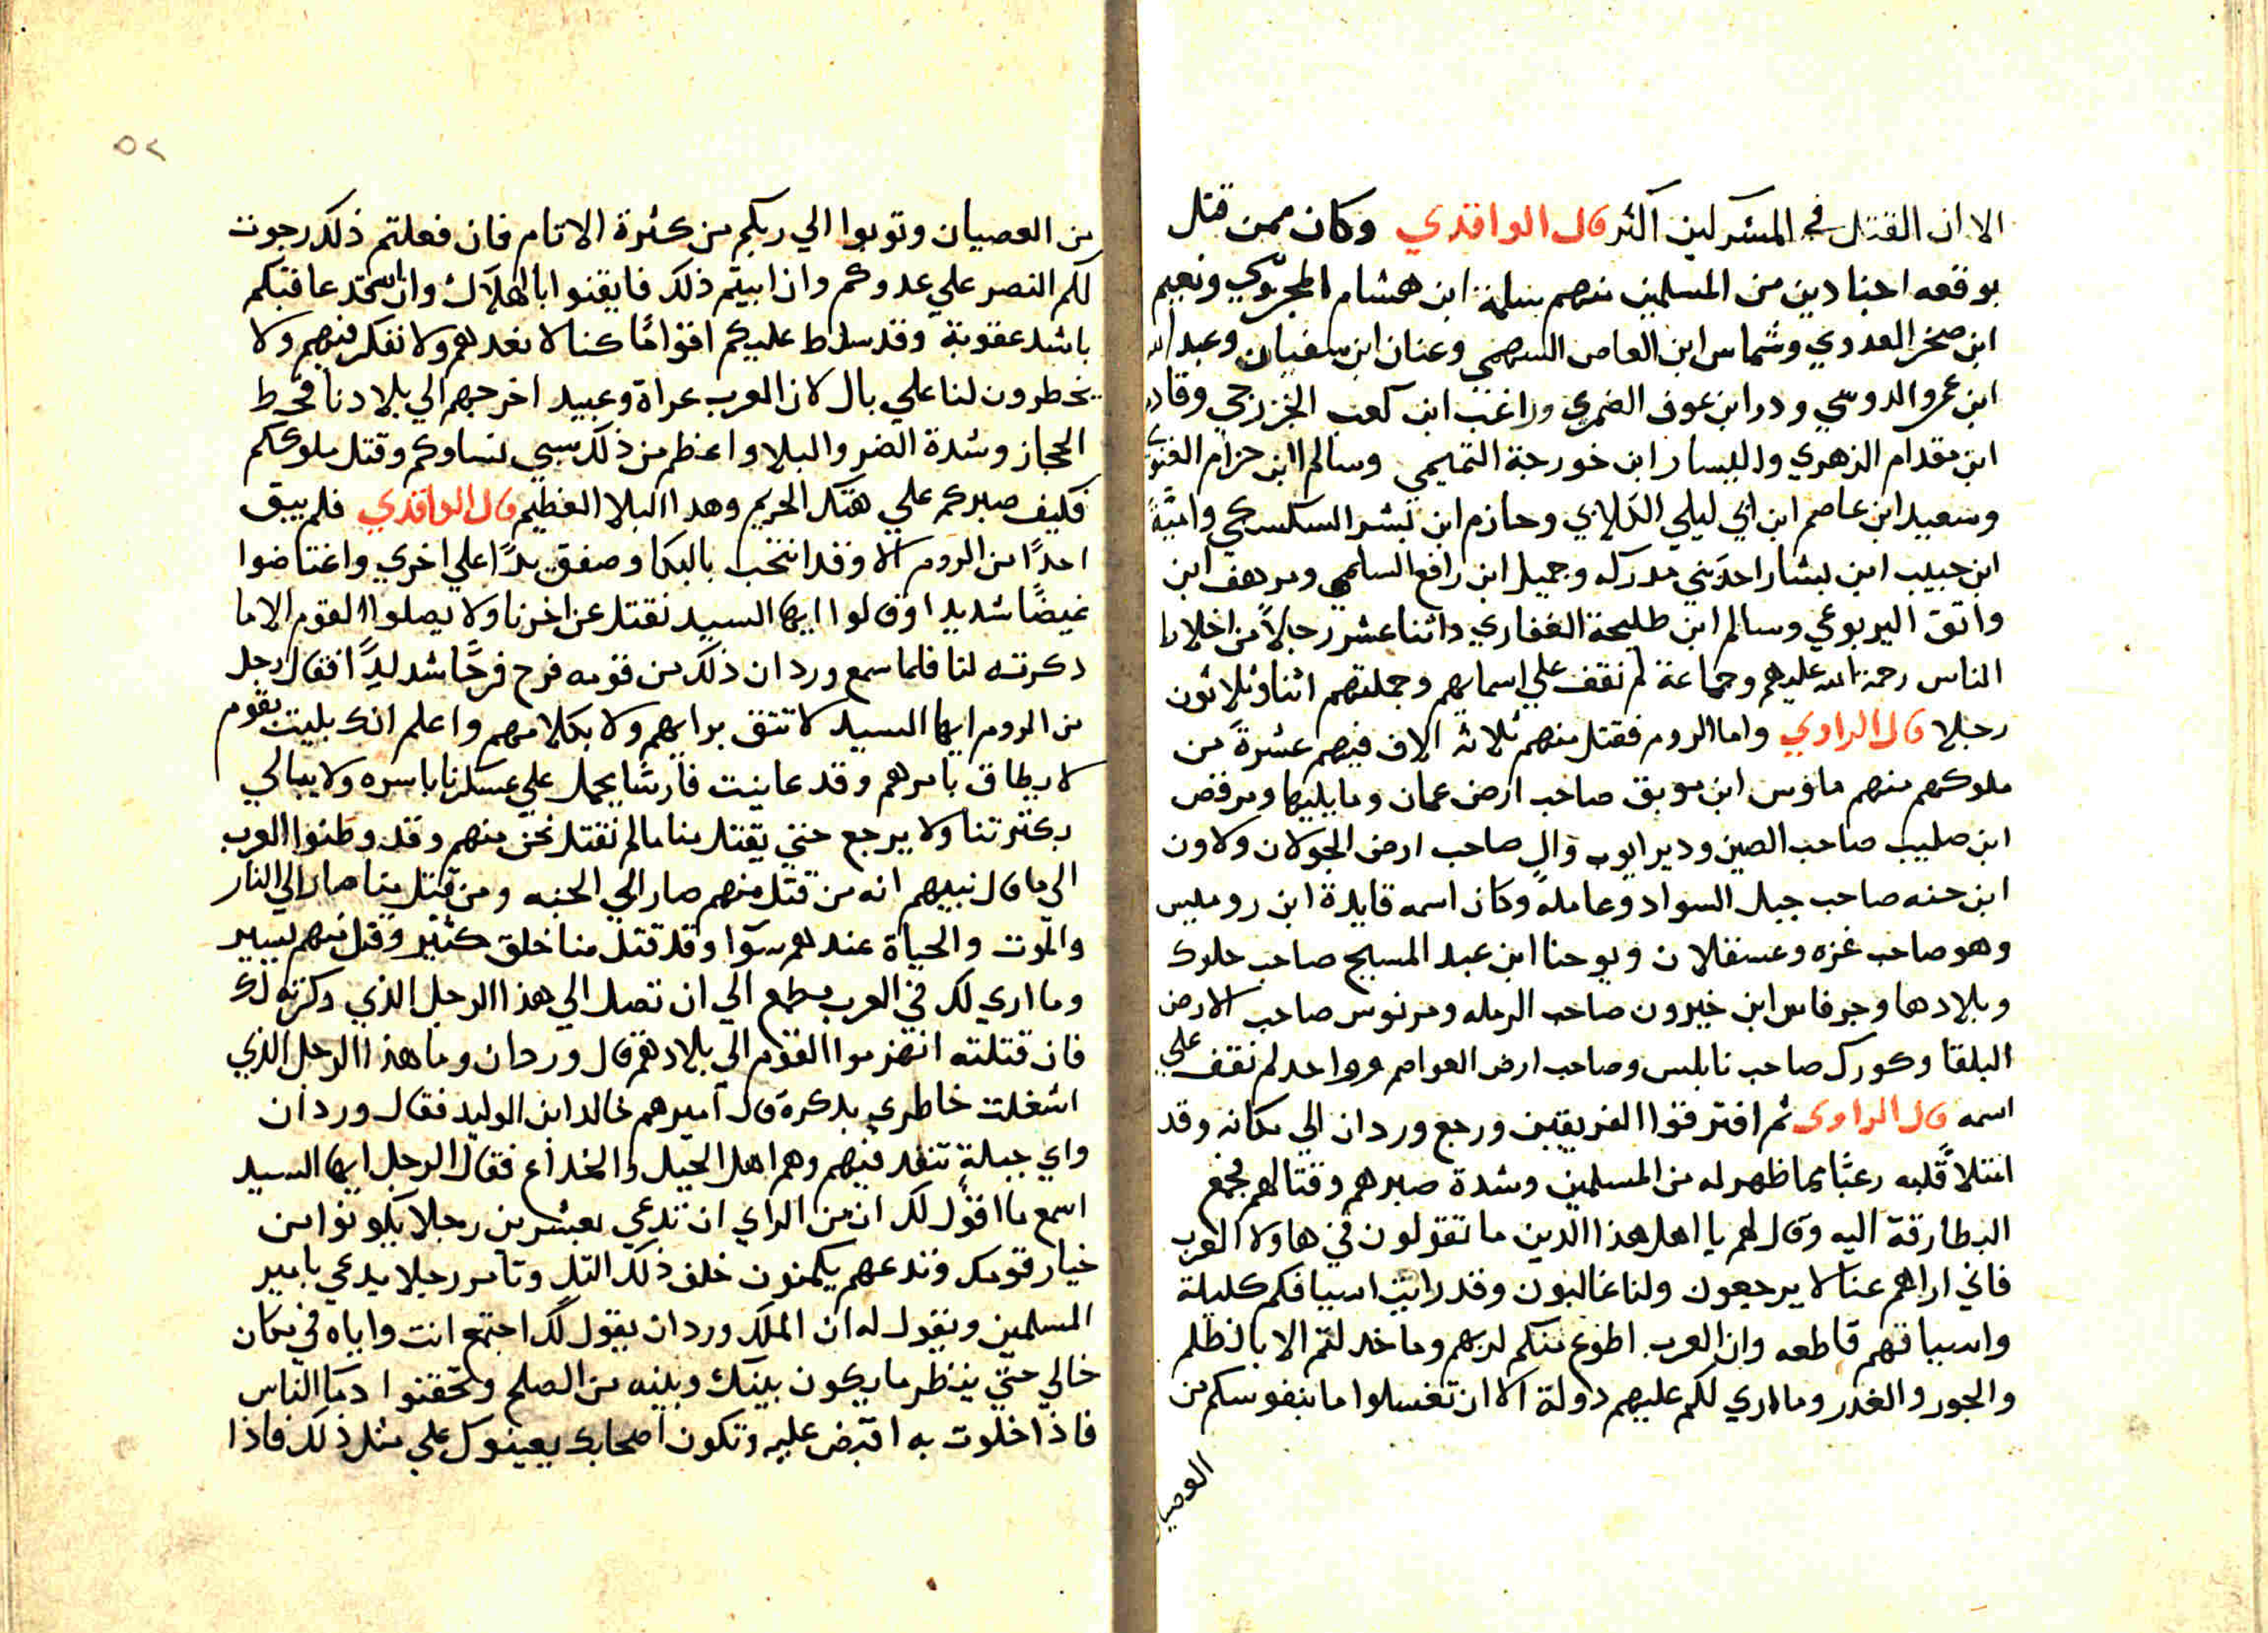 الا ان القتل في المشركين اكثر قال الواقدي وكان ممن قتل
بوقعه اجنادين من المسلمين منهم سلمة ابن هشام المخزومي ونعيم
ابن صخر العدوي وشماس ابن العاص السهمي وعنان ابن سفيان وعبد الله
ابن عمرو الدوسي ودر ابن عوف الضمري وراغب ابن كعب الخزرجي وقادم
ابن مقدام الزهري واليسار ابن خورجة التميمي وسالم ابن حزام الغنوي
وسعيد ابن عاصم ابن ابي ليلي الكلابي وحازم ابن بشر السكسكي وامية
ابن حبيب ابن بشار احد بني مدركه وجميل ابن رافع السلمي ومرهف ابن
واثق اليربوعي وسالم ابن طليحة الغفاري واثنا عشر رجالا من اخلاط
الناس رحمة الله عليهم وجماعة لم نقف علي اسمايهم وجملتهم اثنا وثلاثون
رجلا قال الراوي واما الروم فقتل منهم ثلاثة الاف فيهم عشرة من
ملوكهم منهم ماوس ابن موبق صاحب ارض عمان وما يليها ومرقص
ابن صليب صاحب الصين ودير ايوب وال صاحب ارض الجولان ولاون
ابن حنه صاحب جبل السواد وعامله وكان اسمه قايدة ابن روميس
وهو صاحب غزه وعسقلان ويوحنا ابن عبد المسيح صاحب حلوك
وبلادها وجرفاس ابن خيرون صاحب الرمله ومرنوس صاحب الارض
البلقا وكورك صاحب نابلس وصاحب ارض العواصم وواحد لم نقف علي
اسمه قال الراوي ثم افترقوا الفريقين ورجع وردان الي مكانه وقد
امتلا قلبه رعبا بما ظهر له من المسلمين وشدة صبرهم وقتالهم فجمع
البطارقة اليه وقال لهم يا اهل هذا الدين ما تقولون في هاولا العرب
فاني اراهم عنا لا يرجعون ولنا غالبون وقد رايت اسيافكم كليلة
واسيافهم قاطعه وان العرب اطوع منكم لربهم وما خدلتم الا بالظلم
والجور والغدر وما اري لكم عليهم دولة الا ان تغسلوا ما بنفوسكم من
العصيان
٥٢
من العصيان وتوبوا الي ربكم من كثرة الاتام فان فعلتم ذلك رجوت
لكم النصر علي عدوكم وان ابيتم ذلك فايقنوا بالهلاك وان اشد عاقبتكم
باشد عقوبة وقد سلط عليكم اقواما كنا لا نعدهم ولا نفكر فيهم ولا
يخطرون لنا علي بال لان العرب عراة وعبيد اخرجهم الي بلادنا قحط
الحجاز وشدة الضر والبلا واعظم من ذلك سبي نساوكم وقتل ملوككم
فكيف صبركم علي هتك الحريم وهدا البلا العظيم قال الواقدي فلم يبق
احدا من الروم الا وقد انتحب بالبكا وصفق يدا علي اخري واغتاضوا
غيضا شديدا وقالوا ايها السيد نقتل عن اخرنا ولا يصلوا القوم الا ما
دكرته لنا فلما سمع وردان ذلك من قومه فرح فرحا شديدا فقال رجل
من الروم ايها السيد لا تتق برايهم ولا بكلامهم واعلم انك بليت بقوم
لا يطاق بامرهم وقد عاينت فارسا يحمل علي عسكرنا باسره ولا يبالي
بكثرتنا ولا يرجع حتي يقتل منا ما لم نقتل نحن منهم وقد وطنوا العرب
الي ما قال نبيهم انه من قتل منهم صار الي الجنه ومن قتل منا صار الي النار
والموت والحياة عندهم سوا وقد قتل منا خلق كثير وقتل منهم يسير
وما اري لك في العرب مطمع الي ان تصل الي هذا الرجل الذي دكرته لك
فان قتلته انهزموا القوم الي بلادهم قال وردان وما هذا الرجل الذي
اشغلت خاطري بدكرة قال اميرهم خالد ابن الوليد فقال وردان
واي حيلة تنفد فيهم وهم اهل الحيل والخداع فقال الرجل ايها السيد
اسمع ما اقول لك ان من الراي ان تدعي بعشرين رجلا يكونوا من
خيار قومك وتدعهم يكمنون خلف ذلك التل وتامر رجلا يدعي بامير
المسلمين ويقول له ان الملك وردان يقول لك اجتمع انت واياه في مكان
خالي حتي ينظر ما يكون بينك وبينه من الصلح وتحقنوا دما الناس
فاذا خلوت به اقبض عليه وتكون اصحابك يعينوك علي مثل ذلك فاذا